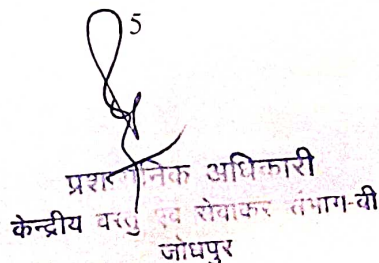 5
प्रशासनिक अधिकारी
केन्द्रीय वस्तु एवं सेवाकर संभाग-बी
जोधपुर